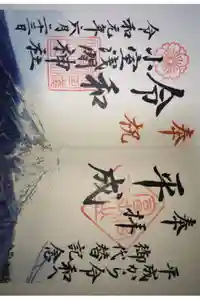 奉祝
令和
小室浅間神社
令和元年六月二十三日
奉拝
平成
平成から令和へ
御代替記念